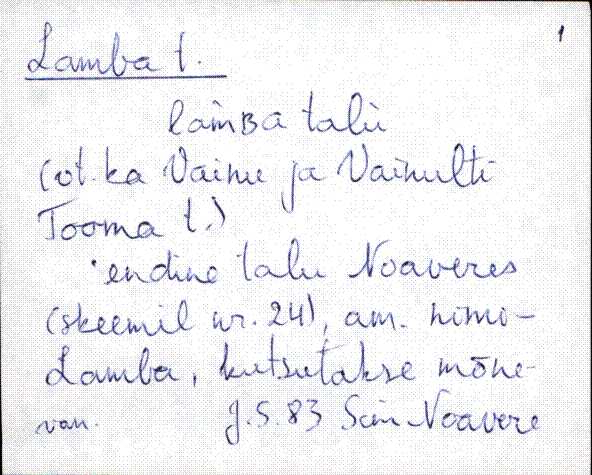 1
Lamba t.
lam̀ʙa talù
(vt. ka Vainu ja Vainulti
Tooma t.)
endine talu Noaveres
(skeemil nr. 24), am. nimi-
Lamba, kutsutakse mõne-
J.S. 83 Noavere